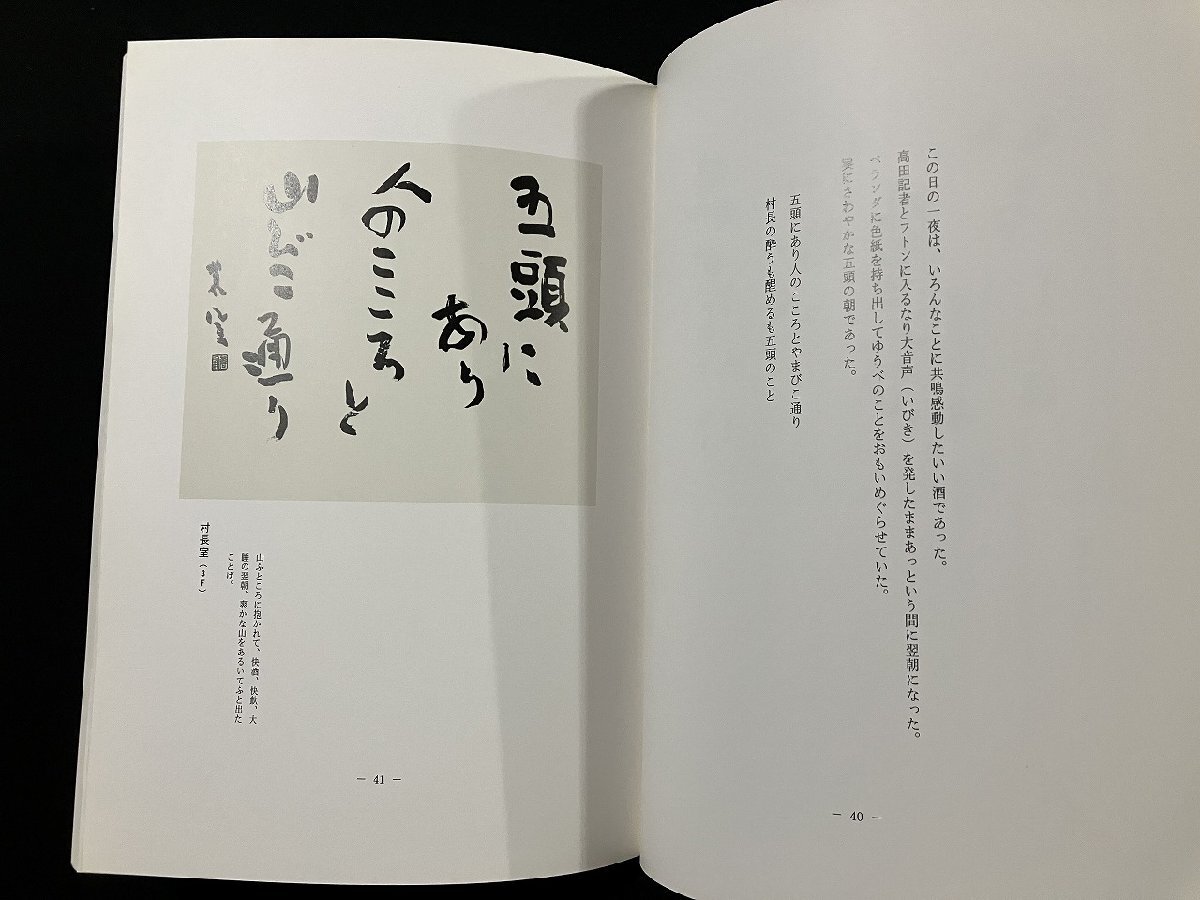 この日の一夜は、いろんなことに共鳴感動したいい酒であった。
高田記者とフトンに入るなり大音声（いびき）を発したままあっという間に翌朝になった。
ベランダに色紙を持ち出してゆうべのことをおもいめぐらせていた。
実にさわやかな五頭の朝であった。
五頭にあり人のこころとやまびこ通り
村長の酔うも醒めるも五頭のこと
― 40 ―
五頭に
あり
人のこころ
と
山びこ通り
山ふところに抱かれて、快酒、快飲、大
睡の翌朝、爽かな山をあるいてふと出た
ことば。
村長室（3F）
― 41 ―